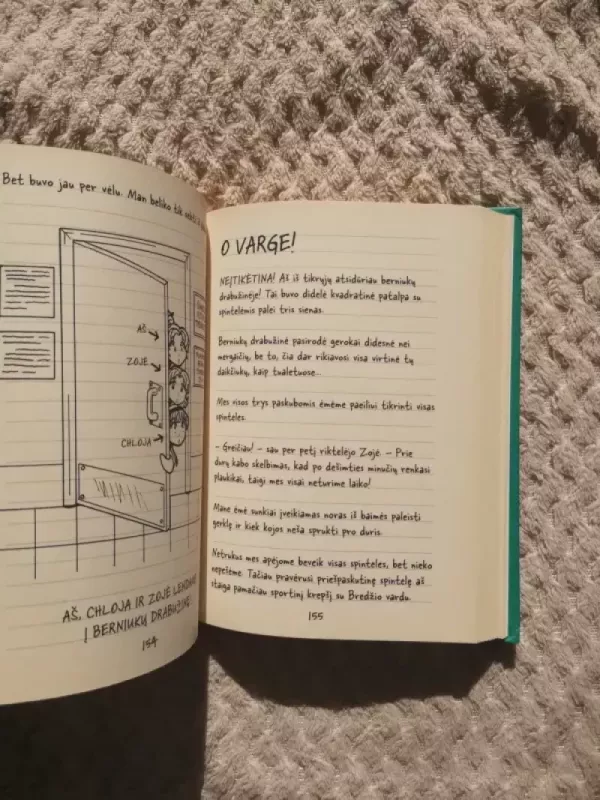 Bet buvo jau per vėlu. Man beliko tik
AŠ
ZOJĖ
CHLOJA
AŠ, CHLOJA IR ZOJĖ
Į BERNIUKŲ DRABUŽINĘ
154
O VARGE!
NEĮTIKĖTINA! Aš iš tikrųjų atsidūriau berniukų
drabužinėje! Tai buvo didelė kvadratinė patalpa su
spintelėmis palei tris sienas.
Berniukų drabužinė pasirodė gerokai didesnė nei
mergaičių, be to, čia dar rikiavosi visa virtinė tų
daikčiukų, kaip tualetuose...
Mes visos trys paskubomis ėmėme paeiliui tikrinti visas
spinteles.
– Greičiau! – sau per petį riktelėjo Zojė. – Prie
durų kabo skelbimas, kad po dešimties minučių renkasi
plaukikai, taigi mes visai neturime laiko!
Mane ėmė sunkiai įveikiamas noras iš baimės paleisti
gerklę ir kiek kojos neša sprukti pro duris.
Netrukus mes apėjome beveik visas spinteles, bet nieko
nepešėme. Tačiau pravėrusi priešpaskutinę spintelę aš
staiga pamačiau sportinį krepšį su Bredžio vardu.
155